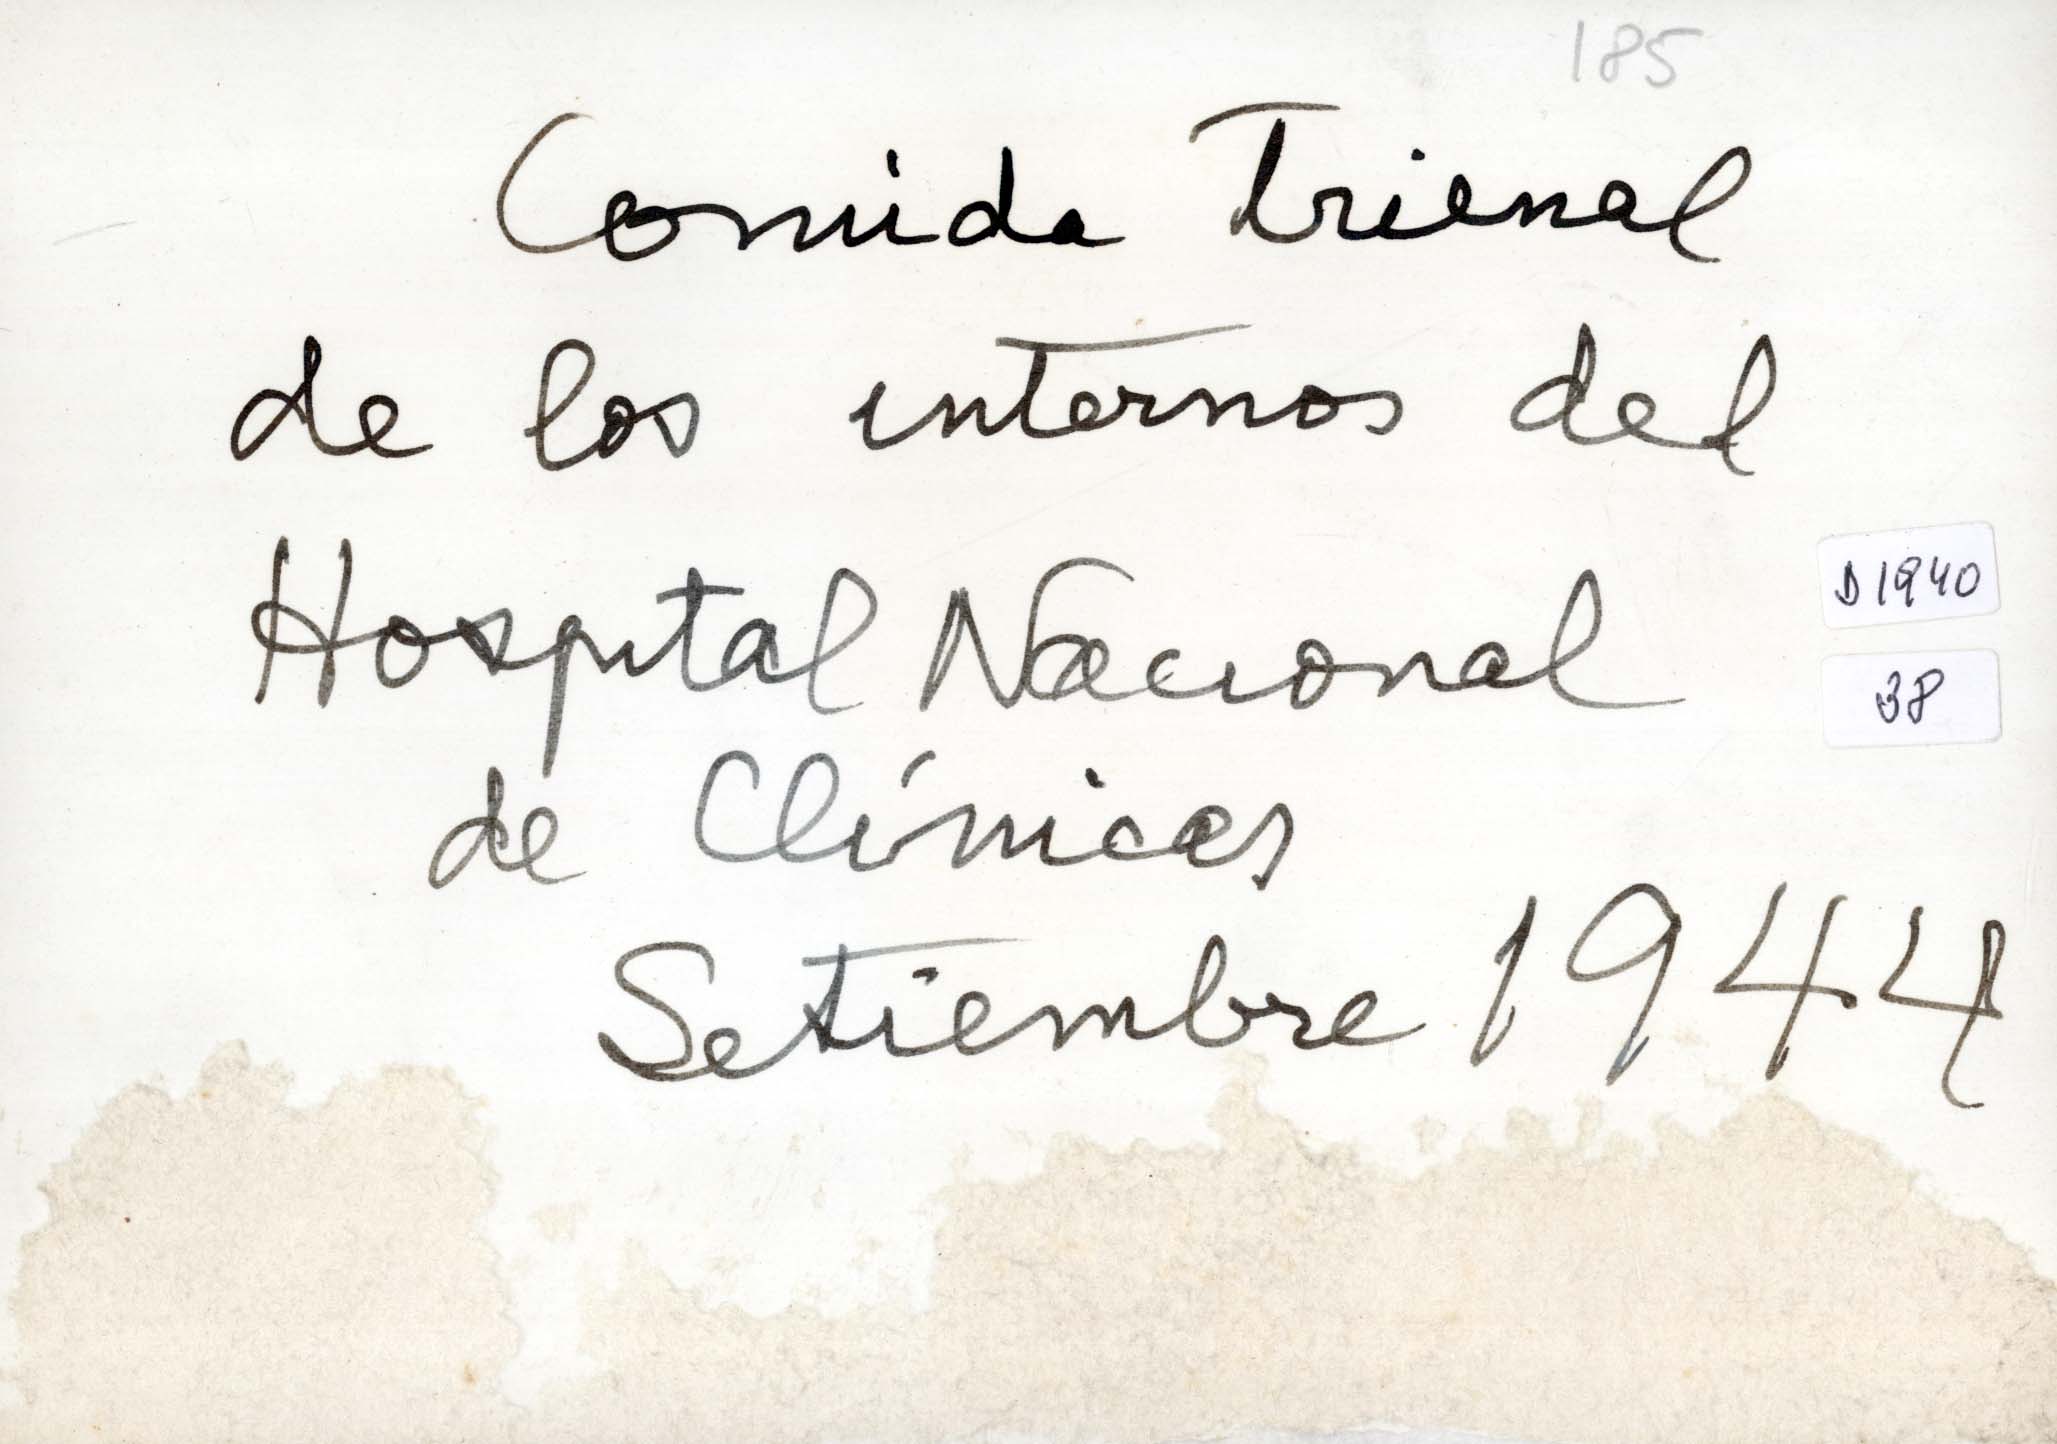 185
Comida Trienal
de los internos del
Hospital Nacional
D1940
38
de Clínicas
Setiembre 1944